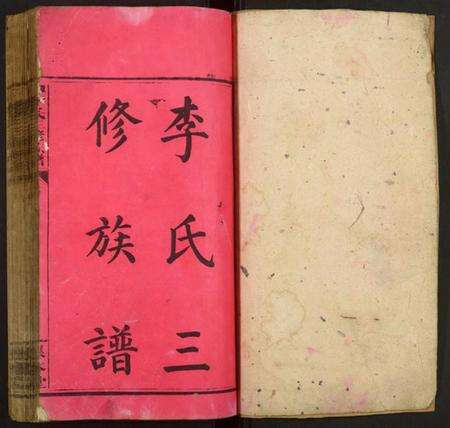 李氏三
修族譜